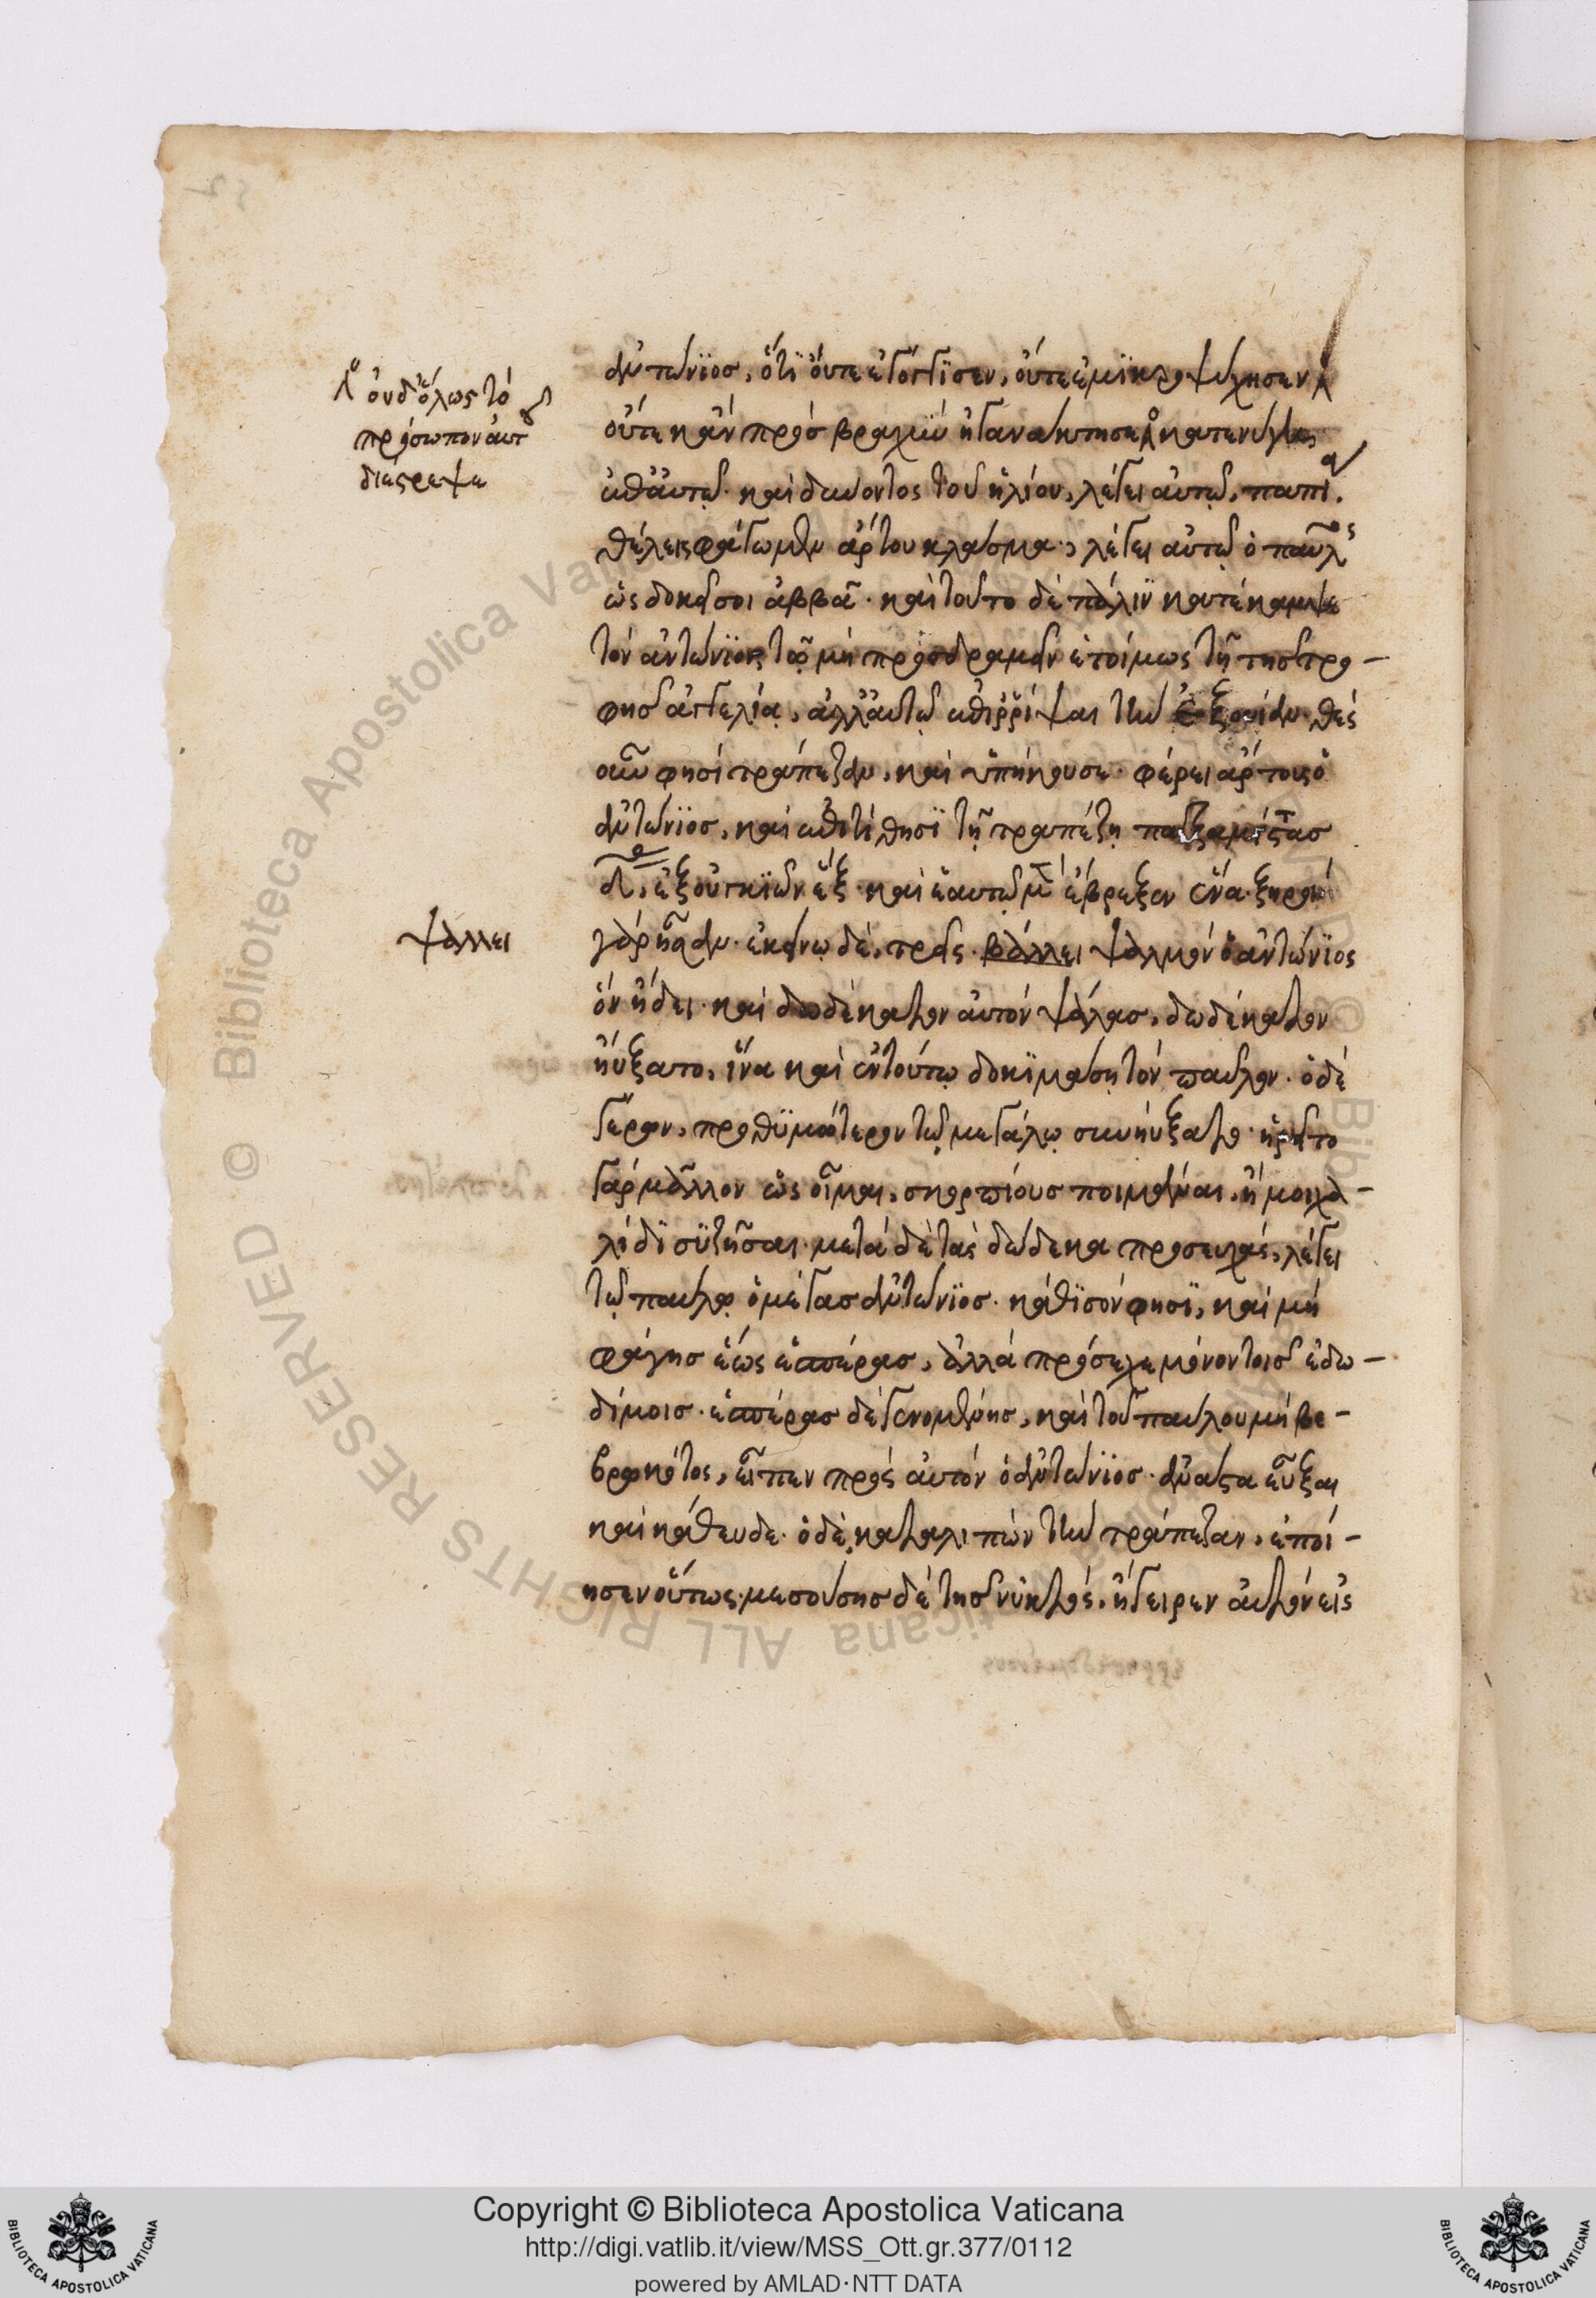 ἀντώνϊος, ὅτϊ οὔτε ἐγόγγϊσεν, οὔτε ἐμϊκροψύχησεν
οὔτε κἂν πρὸς βραχὺ ἠγανάκτησε κατενύγη
ἐπ' αὐτῷ. καὶ δύνοντος τοῦ ἡλίου, λέγει αὐτῷ, παπί.
θέλεις φάγωμεν ἄρτου κλάσμα, λέγει αὐτῷ ὁ παῦλος
ὡς δοκεῖ σοι ἀββᾶ. καὶ τοῦτο δὲ πάλϊν κατέκαμψε
τὸν ἀντώνϊον, τῷ μὴ προσδραμεῖν ἑτοίμως τῇ τῆς τρο-
φῆς ἀγγελίᾳ, ἀλλ' αὐτῷ ἐπιρρίψαι τὴν ἐξουσίαν. θὲς
οὖν φησὶ τράπεζαν, καὶ ὑπήκουσε. φέρει ἄρτους ὁ
ἀντώνϊος, καὶ ἐπιτίθησϊ τῇ τραπέζῃ
ἐξ οὐγκϊῶν ἓξ. καὶ ἑαυτῷ μὲν ἔβρεξεν ἕνα. ξηροὶ
γὰρ ἦσαν. ἐκείνῳ δὲ, τρεῖς. βάλλει ψαλμὸν ὁ ἀντώνϊος
ὃν ᾔδει. καὶ δωδέκατον αὐτὸν ψάλας, δωδέκατον
ηὔξατο, ἵνα καὶ ἐν τούτῳ δοκϊμάσῃ τὸν παῦλον. ὁ δὲ
γέρων, προθϋμότερον τῷ μεγάλῳ συνηύξατο. ᾑρεῖτο
γὰρ μᾶλλον ὡς οἶμαι, σκορπίους ποιμᾶναι, ἢ μοιχα-
λίδϊ σϋζῆσαι. μετὰ δὲ τὰς δώδεκα προσευχάς, λέγει
τῷ παύλῳ ὁ μέγας ἀντώνϊος. κάθϊσόν φησϊ, καὶ μὴ
φάγῃς ἕως ἑσπέρας, ἀλλὰ πρόσεχε μόνον τοῖς ἐδω-
δίμοις. ἑσπέρας δὲ γενομένης, καὶ τοῦ παύλου μὴ βε-
βρωκότος, εἶπεν πρὸς αὐτὸν ὁ ἀντώνϊος. ἀνάστα εὖξαι
καὶ κάθευδε. ὁ δὲ καταλιπὼν τὴν τράπεζαν, ἐποί-
ησεν οὕτως. μεσούσης δὲ τῆς νϋκτὸς, ἤγειρεν αὐτὸν εἰς
οὐδ' ὅλως τὸ
πρόσωπον αὐτοῦ
διέστρεψε
ψάλλει
Copyright © Biblioteca Apostolica Vaticana
http://digi.vatlib.it/view/MSS_Ott.gr.377/0112
powered by AMLAD·NTT DATA
BIBLIOTECA APOSTOLICA VATICANA
BIBLIOTECA APOSTOLICA VATICANA